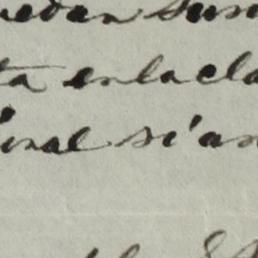 uedan sum
ta enla cla
inal si an